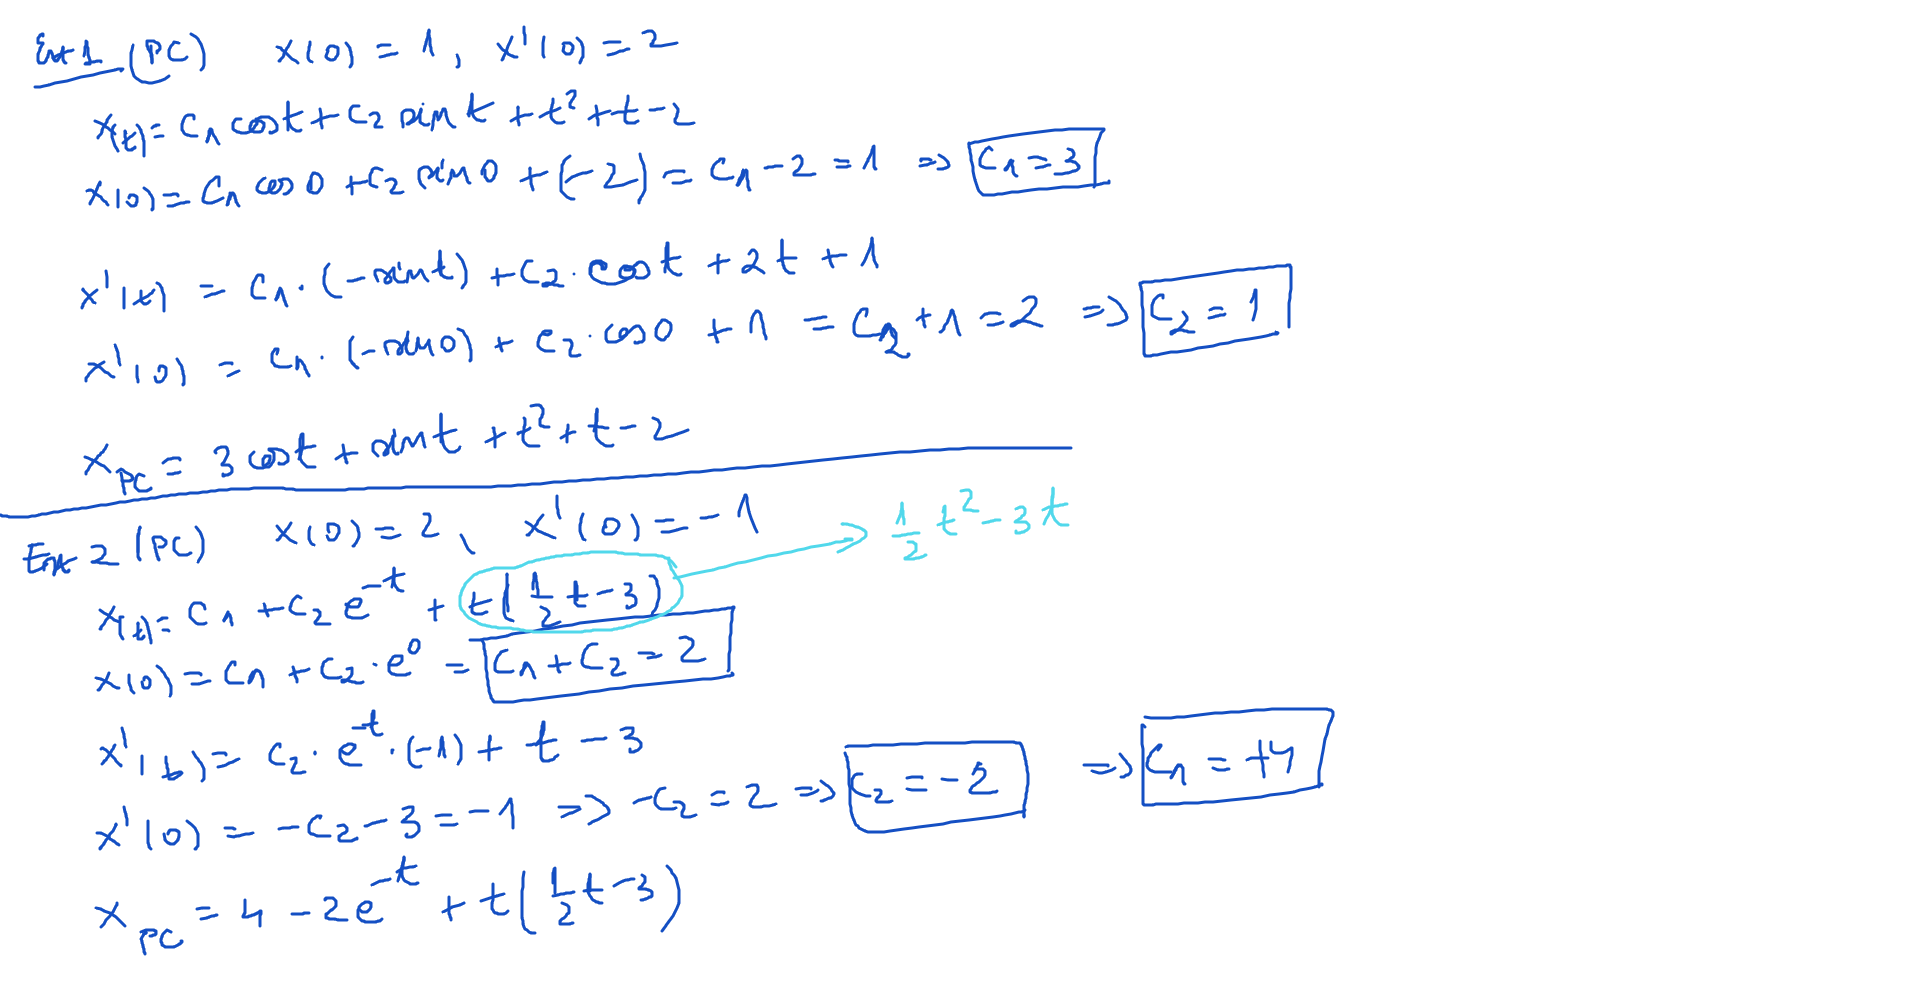 Ex 1 (PC) x(0) = 1, x'(0) = 2
x(t) = C₁ cos t + C₂ sin t + t² + t - 2
x(0) = C₁ cos 0 + C₂ sin 0 + (-2) = C₁ - 2 = 1 => C₁ = 3
x'(t) = C₁ · (-sin t) + C₂ · cos t + 2t + 1
x'(0) = C₁ · (-sin 0) + C₂ · cos 0 + 1 = C₂ + 1 = 2 => C₂ = 1
x_PC = 3 cos t + sin t + t² + t - 2
Ex 2 (PC) x(0) = 2, x'(0) = -1
x(t) = C₁ + C₂ e^(-t) + t(1/2 t - 3) → 1/2 t² - 3t
x(0) = C₁ + C₂ · e⁰ = C₁ + C₂ = 2
x'(t) = C₂ · e^(-t) · (-1) + t - 3
x'(0) = -C₂ - 3 = -1 => -C₂ = 2 => C₂ = -2 => C₁ = +4
x_PC = 4 - 2e^(-t) + t(1/2 t - 3)